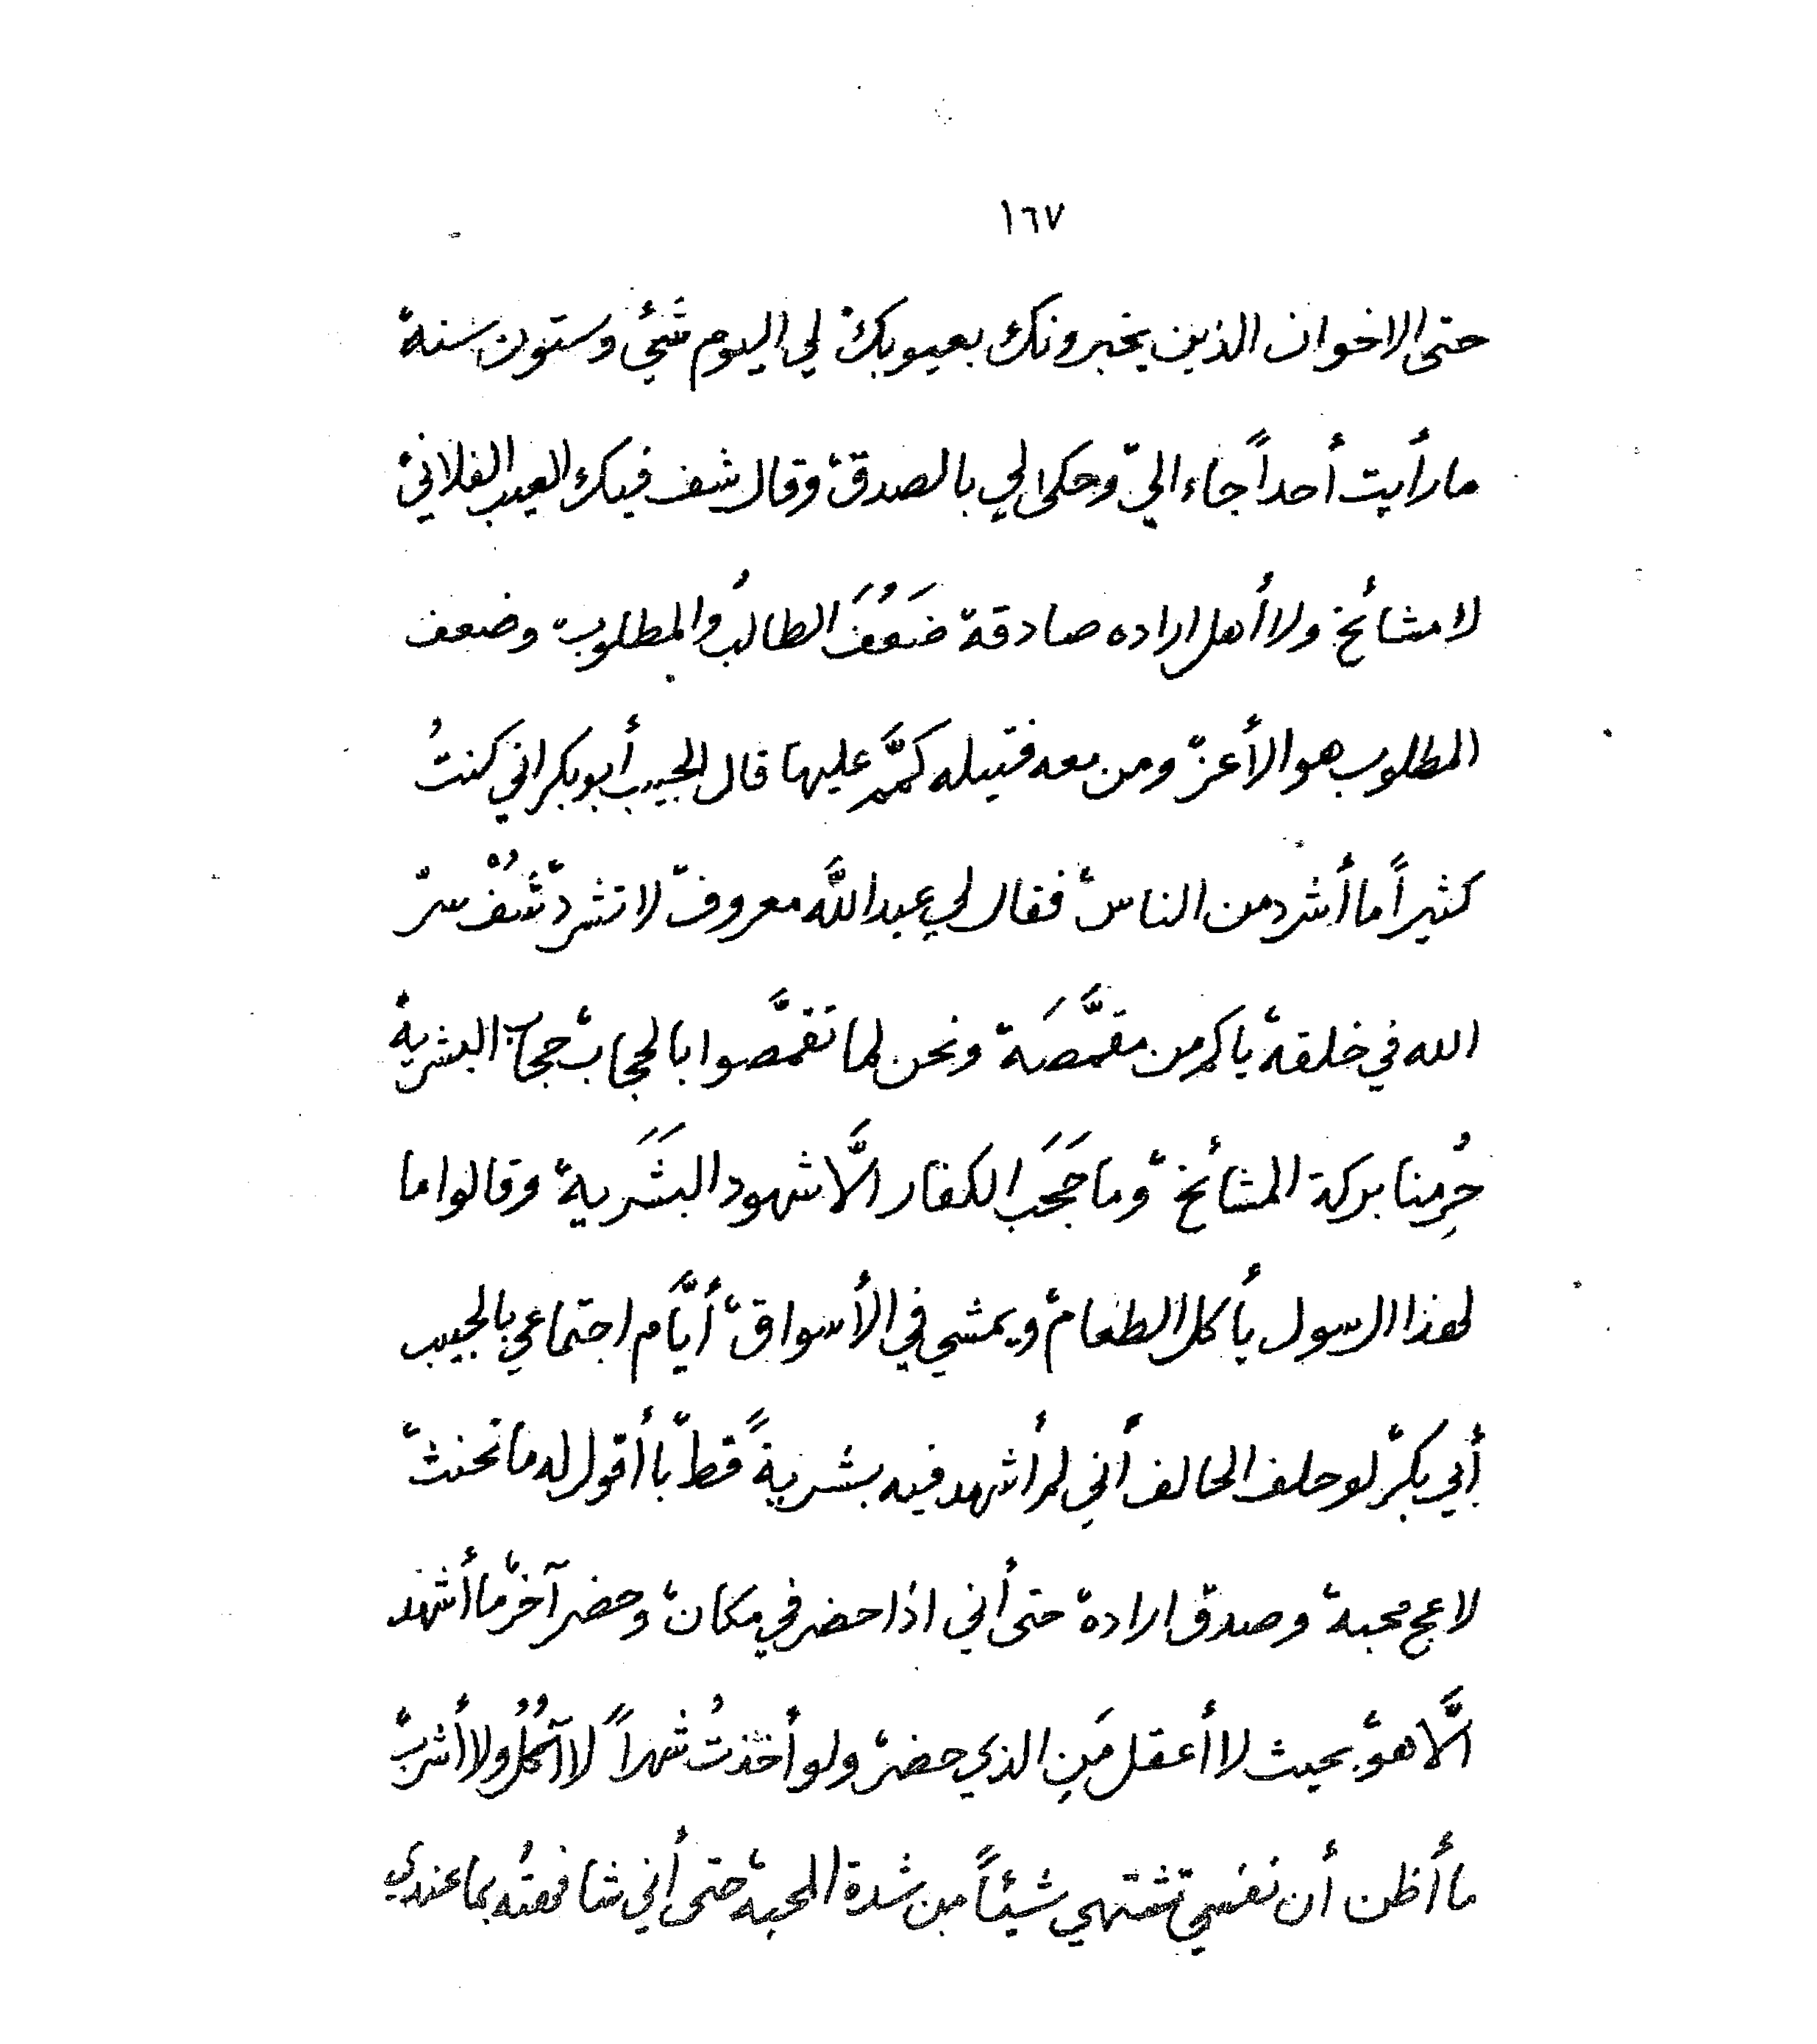 ١٦٧
حتى الاخوان الذين يخبرونك بعيوبك، لي اليوم شيْ وستون سنة،
ما رأيت أحداً جاء اليّ، وحكى لي بالصدق، وقال شف فيك العيب الفلاني،
لا مشائخ ولا أهل اراده صادقة، ضَعُفَ الطالبُ والمطلوب، وضعف
المطلوب هو الأعزّ ومن معه فتيله كمَّم عليها قال الحبيب أبوبكر اني كنتُ
كثيراً ما أشرد من الناس، فقال لي عبدالله معروف، لا تشرد، شُفْ سرّ
الله في خلقه، يا كم من مقمَّصَة، ونحن لما تقمَّصوا بالحجاب، حجاب البشرية،
حُرِمنا بركة المشائخ، وما حَجَب الكفار الَّا شهود البَشَرية، وقالوا ما
لهذا الرسول يأكل الطعام، ويمشي في الأسواق، أيَّام اجتماعي بالحبيب
أبي بكر، لو حلف الحالف أني لم أشهد فيه بشريةً قطّ، با أقول له ما نحنث،
لاعج محبة، وصدق ارادة، حتى أني اذا حضر في مكان، وحضر آخر، ما أشهد
الَّا هو، بحيث لا أعقل مَنِ الذي حضر، ولو أخذتُ شهراً لا آكُلُ ولا أشرب،
ما أظن أن نفسي تشتهي شيئاً من شدة المحبة، حتى أني شافهتُه بما عندي،